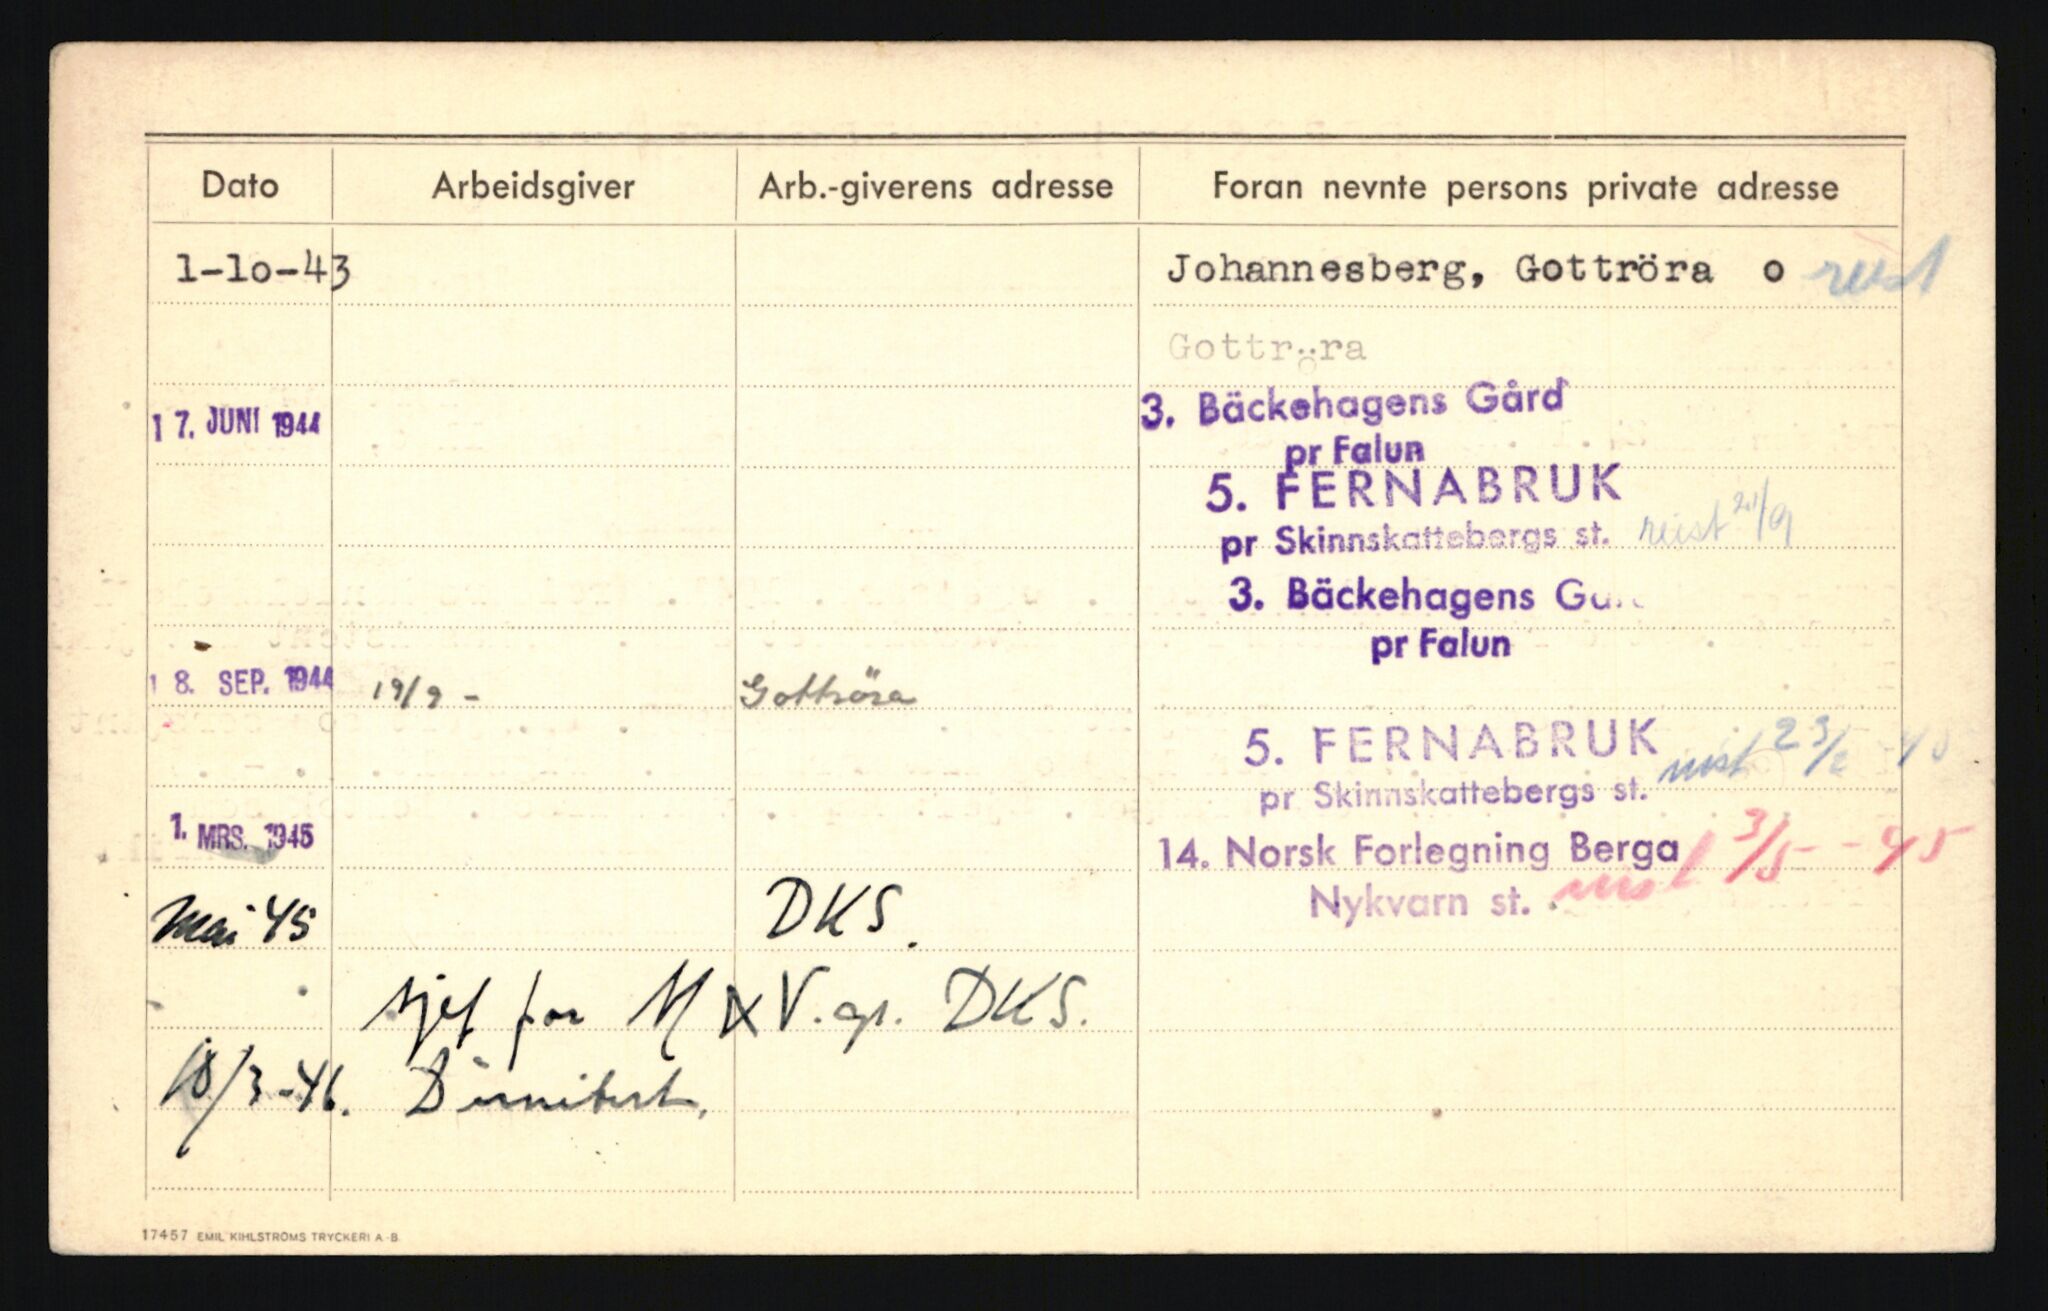 Dato Arbeidsgiver Arb.-giverens adresse Foran nevnte persons private adresse
1-1o-43 Johannesberg, Gottröra o reist
Gottröra
17. JUNI 1944 3. Bäckehagens Gård
pr Falun
5. FERNABRUK
pr Skinnskattebergs st. reist /9
3. Bäckehagens
pr Falun
18. SEP. 1944 19/9 - Gottröra
5. FERNABRUK reist 23/2 - 45
pr Skinnskattebergs st.
1. MRS. 1945 14. Norsk Forlegning Berga 3/5 - 45
Nykvarn st. reist
Mai 45 DKS.
sjef for M V. gr. DKS.
18/3-46. Dimitert.
17457 EMIL KIHLSTRÖMS TRYCKERI A.-B.